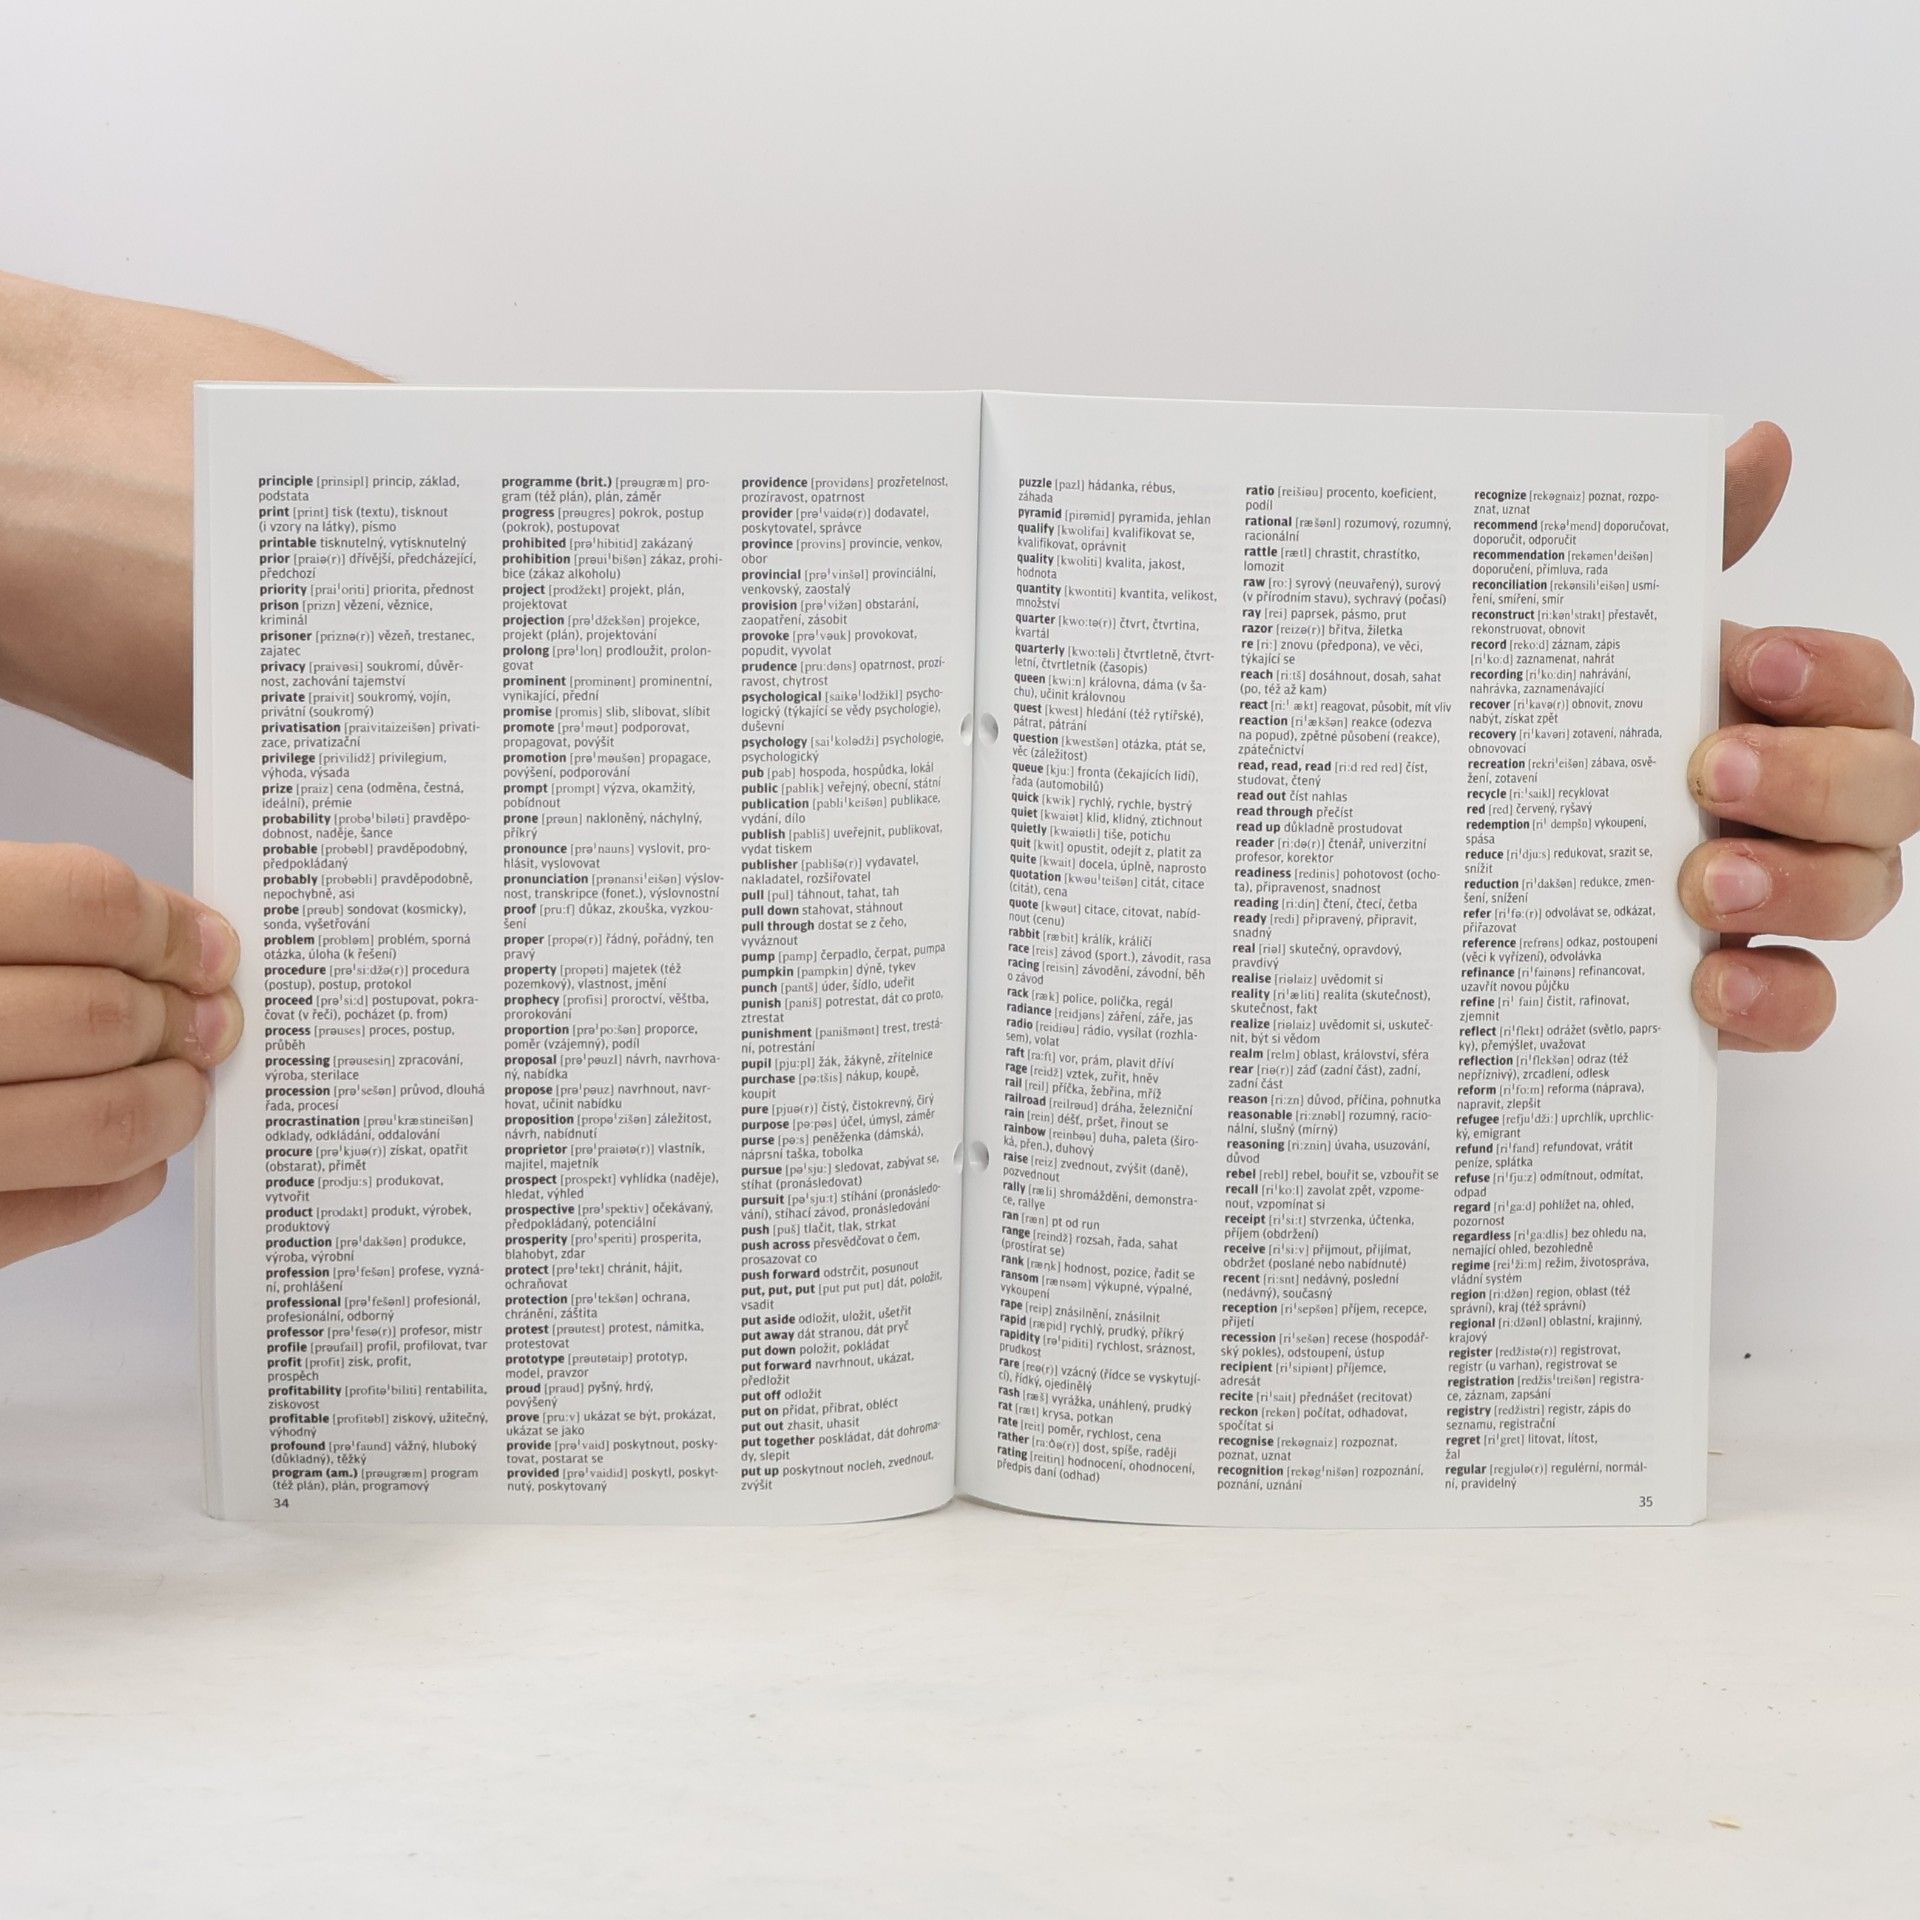 principle [prinsipl] princip, základ,
podstata
print [print] tisk (textu), tisknout
(i vzory na látky), písmo
printable tisknutelný, vytisknutelný
prior [praiə(r)] dřívější, předcházející,
předchozí
priority [praiˈoriti] priorita, přednost
prison [prizn] vězení, věznice,
kriminál
prisoner [priznə(r)] vězeň, trestanec,
zajatec
privacy [praivəsi] soukromí, důvěr-
nost, zachování tajemství
private [praivit] soukromý, vojín,
privátní (soukromý)
privatisation [praivitaizeišən] privati-
zace, privatizační
privilege [privilidž] privilegium,
výhoda, výsada
prize [praiz] cena (odměna, čestná,
ideální), prémie
probability [probəˈbiləti] pravděpo-
dobnost, naděje, šance
probable [probəbl] pravděpodobný,
předpokládaný
probably [probəbli] pravděpodobně,
nepochybně, asi
probe [prəub] sondovat (kosmicky),
sonda, vyšetřování
problem [probləm] problém, sporná
otázka, úloha (k řešení)
procedure [prəˈsi:džə(r)] procedura
(postup), postup, protokol
proceed [prəˈsi:d] postupovat, pokra-
čovat (v řeči), pocházet (p. from)
process [prəuses] proces, postup,
průběh
processing [prəusesiŋ] zpracování,
výroba, sterilace
procession [prəˈsešən] průvod, dlouhá
řada, procesí
procrastination [prəuˈkræstineišən]
odklady, odkládání, oddalování
procure [prəˈkjuə(r)] získat, opatřit
(obstarat), přimět
produce [prodju:s] produkovat,
vytvořit
product [prodakt] produkt, výrobek,
produktový
production [prəˈdakšən] produkce,
výroba, výrobní
profession [prəˈfešən] profese, vyzná-
ní, prohlášení
professional [prəˈfešənl] profesionál,
profesionální, odborný
professor [prəˈfesə(r)] profesor, mistr
profile [prəufail] profil, profilovat, tvar
profit [profit] zisk, profit,
prospěch
profitability [profitəˈbiliti] rentabilita,
ziskovost
profitable [profitəbl] ziskový, užitečný,
výhodný
profound [prəˈfaund] vážný, hluboký
(důkladný), těžký
program (am.) [prəugræm] program
(též plán), plán, programový
34
programme (brit.) [prəugræm] pro-
gram (též plán), plán, záměr
progress [prəugres] pokrok, postup
(pokrok), postupovat
prohibited [prəˈhibitid] zakázaný
prohibition [prəuiˈbišən] zákaz, prohi-
bice (zákaz alkoholu)
project [prodžekt] projekt, plán,
projektovat
projection [prəˈdžekšən] projekce,
projekt (plán), projektování
prolong [prəˈloŋ] prodloužit, prolon-
govat
prominent [prominənt] prominentní,
vynikající, přední
promise [promis] slib, slibovat, slíbit
promote [prəˈməut] podporovat,
propagovat, povýšit
promotion [prəˈməušən] propagace,
povýšení, podporování
prompt [prompt] výzva, okamžitý,
pobídnout
prone [prəun] nakloněný, náchylný,
příkrý
pronounce [prəˈnauns] vyslovit, pro-
hlásit, vyslovovat
pronunciation [prənansiˈeišən] výslov-
nost, transkripce (fonet.), výslovnostní
proof [pru:f] důkaz, zkouška, vyzkou-
šení
proper [propə(r)] řádný, pořádný, ten
pravý
property [propəti] majetek (též
pozemkový), vlastnost, jmění
prophecy [profisi] proroctví, věštba,
prorokování
proportion [prəˈpo:šən] proporce,
poměr (vzájemný), podíl
proposal [prəˈpəuzl] návrh, navrhova-
ný, nabídka
propose [prəˈpəuz] navrhnout, navr-
hovat, učinit nabídku
proposition [propəˈzišən] záležitost,
návrh, nabídnutí
proprietor [prəˈpraiətə(r)] vlastník,
majitel, majetník
prospect [prospekt] vyhlídka (naděje),
hledat, výhled
prospective [prəˈspektiv] očekávaný,
předpokládaný, potenciální
prosperity [proˈsperiti] prosperita,
blahobyt, zdar
protect [prəˈtekt] chránit, hájit,
ochraňovat
protection [prəˈtekšən] ochrana,
chránění, záštita
protest [prəutest] protest, námitka,
protestovat
prototype [prəutətaip] prototyp,
model, pravzor
proud [praud] pyšný, hrdý,
povýšený
prove [pru:v] ukázat se být, prokázat,
ukázat se jako
provide [prəˈvaid] poskytnout, posky-
tovat, postarat se
provided [prəˈvaidid] poskytl, poskyt-
nutý, poskytovaný
providence [providəns] prozřetelnost,
prozíravost, opatrnost
provider [prəˈvaidə(r)] dodavatel,
poskytovatel, správce
province [provins] provincie, venkov,
obor
provincial [prəˈvinšəl] provinciální,
venkovský, zaostalý
provision [prəˈvižən] obstarání,
zaopatření, zásobit
provoke [prəˈvəuk] provokovat,
popudit, vyvolat
prudence [pru:dəns] opatrnost, prozí-
ravost, chytrost
psychological [saikəˈlodžikl] psycho-
logický (týkající se vědy psychologie),
duševní
psychology [saiˈkolədži] psychologie,
psychologický
pub [pab] hospoda, hospůdka, lokál
public [pablik] veřejný, obecní, státní
publication [pabliˈkeišən] publikace,
vydání, dílo
publish [pabliš] uveřejnit, publikovat,
vydat tiskem
publisher [pablišə(r)] vydavatel,
nakladatel, rozšiřovatel
pull [pul] táhnout, tahat, tah
pull down stahovat, stáhnout
pull through dostat se z čeho,
vyváznout
pump [pamp] čerpadlo, čerpat, pumpa
pumpkin [pampkin] dýně, tykev
punch [pantš] úder, šídlo, udeřit
punish [paniš] potrestat, dát co proto,
ztrestat
punishment [panišmənt] trest, trestá-
ní, potrestání
pupil [pju:pl] žák, žákyně, zřítelnice
purchase [pə:tšis] nákup, koupě,
koupit
pure [pjuə(r)] čistý, čistokrevný, čirý
purpose [pə:pəs] účel, úmysl, záměr
purse [pə:s] peněženka (dámská),
náprsní taška, tobolka
pursue [pəˈsju:] sledovat, zabývat se,
stíhat (pronásledovat)
pursuit [pəˈsju:t] stíhání (pronásledo-
vání), stíhací závod, pronásledování
push [puš] tlačit, tlak, strkat
push across přesvědčovat o čem,
prosazovat co
push forward odstrčit, posunout
put, put, put [put put put] dát, položit,
vsadit
put aside odložit, uložit, ušetřit
put away dát stranou, dát pryč
put down položit, pokládat
put forward navrhnout, ukázat,
předložit
put off odložit
put on přidat, přibrat, obléct
put out zhasit, uhasit
put together poskládat, dát dohroma-
dy, slepit
put up poskytnout nocleh, zvednout,
zvýšit
puzzle [pazl] hádanka, rébus,
záhada
pyramid [pirəmid] pyramida, jehlan
qualify [kwolifai] kvalifikovat se,
kvalifikovat, oprávnit
quality [kwoliti] kvalita, jakost,
hodnota
quantity [kwontiti] kvantita, velikost,
množství
quarter [kwo:tə(r)] čtvrt, čtvrtina,
kvartál
quarterly [kwo:təli] čtvrtletně, čtvrt-
letní, čtvrtletník (časopis)
queen [kwi:n] královna, dáma (v ša-
chu), učinit královnou
quest [kwest] hledání (též rytířské),
pátrat, pátrání
question [kwestšən] otázka, ptát se,
věc (záležitost)
queue [kju:] fronta (čekajících lidí),
řada (automobilů)
quick [kwik] rychlý, rychle, bystrý
quiet [kwaiət] klid, klidný, ztichnout
quietly [kwaiətli] tiše, potichu
quit [kwit] opustit, odejít z, platit za
quite [kwait] docela, úplně, naprosto
quotation [kwəuˈteišən] citát, citace
(citát), cena
quote [kwəut] citace, citovat, nabíd-
nout (cenu)
rabbit [ræbit] králík, králičí
race [reis] závod (sport.), závodit, rasa
racing [reisiŋ] závodění, závodní, běh
o závod
rack [ræk] police, polička, regál
radiance [reidjəns] záření, záře, jas
radio [reidiəu] rádio, vysílat (rozhla-
sem), volat
raft [ra:ft] vor, prám, plavit dříví
rage [reidž] vztek, zuřit, hněv
rail [reil] příčka, žebřina, mříž
railroad [reilrəud] dráha, železniční
rain [rein] déšť, pršet, řinout se
rainbow [reinbəu] duha, paleta (širo-
ká, přen.), duhový
raise [reiz] zvednout, zvýšit (daně),
pozvednout
rally [ræli] shromáždění, demonstra-
ce, rallye
ran [ræn] pt od run
range [reindž] rozsah, řada, sahat
(prostírat se)
rank [ræŋk] hodnost, pozice, řadit se
ransom [rænsəm] výkupné, výpalné,
vykoupení
rape [reip] znásilnění, znásilnit
rapid [ræpid] rychlý, prudký, příkrý
rapidity [rəˈpiditi] rychlost, sráznost,
prudkost
rare [reə(r)] vzácný (řídce se vyskytují-
cí), řídký, ojedinělý
rash [ræš] vyrážka, unáhlený, prudký
rat [ræt] krysa, potkan
rate [reit] poměr, rychlost, cena
rather [ra:ðə(r)] dost, spíše, raději
rating [reitiŋ] hodnocení, ohodnocení,
předpis daní (odhad)
ratio [reišiəu] procento, koeficient,
podíl
rational [ræšənl] rozumový, rozumný,
racionální
rattle [rætl] chrastit, chrastítko,
lomozit
raw [ro:] syrový (neuvařený), surový
(v přírodním stavu), sychravý (počasí)
ray [rei] paprsek, pásmo, prut
razor [reizə(r)] břitva, žiletka
re [ri:] znovu (předpona), ve věci,
týkající se
reach [ri:tš] dosáhnout, dosah, sahat
(po, též až kam)
react [ri:ˈækt] reagovat, působit, mít vliv
reaction [riˈækšən] reakce (odezva
na popud), zpětné působení (reakce),
zpátečnictví
read, read, read [ri:d red red] číst,
studovat, čtený
read out číst nahlas
read through přečíst
read up důkladně prostudovat
reader [ri:də(r)] čtenář, univerzitní
profesor, korektor
readiness [redinis] pohotovost (ocho-
ta), připravenost, snadnost
reading [ri:diŋ] čtení, čtecí, četba
ready [redi] připravený, připravit,
snadný
real [riəl] skutečný, opravdový,
pravdivý
realise [riəlaiz] uvědomit si
reality [riˈæliti] realita (skutečnost),
skutečnost, fakt
realize [riəlaiz] uvědomit si, uskuteč-
nit, být si vědom
realm [relm] oblast, království, sféra
rear [riə(r)] záď (zadní část), zadní,
zadní část
reason [ri:zn] důvod, příčina, pohnutka
reasonable [ri:znəbl] rozumný, racio-
nální, slušný (mírný)
reasoning [ri:zniŋ] úvaha, usuzování,
důvod
rebel [rebl] rebel, bouřit se, vzbouřit se
recall [riˈko:l] zavolat zpět, vzpome-
nout, vzpomínat si
receipt [riˈsi:t] stvrzenka, účtenka,
příjem (obdržení)
receive [riˈsi:v] přijmout, přijímat,
obdržet (poslané nebo nabídnuté)
recent [ri:snt] nedávný, poslední
(nedávný), současný
reception [riˈsepšən] příjem, recepce,
přijetí
recession [riˈsešən] recese (hospodář-
ský pokles), odstoupení, ústup
recipient [riˈsipiənt] příjemce,
adresát
recite [riˈsait] přednášet (recitovat)
reckon [rekən] počítat, odhadovat,
spočítat si
recognise [rekəgnaiz] rozpoznat,
poznat, uznat
recognition [rekəgˈnišən] rozpoznání,
poznání, uznání
recognize [rekəgnaiz] poznat, rozpo-
znat, uznat
recommend [rekəˈmend] doporučovat,
doporučit, odporučit
recommendation [rekəmenˈdeišən]
doporučení, přímluva, rada
reconciliation [rekənsiliˈeišən] usmí-
ření, smíření, smír
reconstruct [ri:kənˈstrakt] přestavět,
rekonstruovat, obnovit
record [reko:d] záznam, zápis
[riˈko:d] zaznamenat, nahrát
recording [riˈko:diŋ] nahrávání,
nahrávka, zaznamenávající
recover [riˈkavə(r)] obnovit, znovu
nabýt, získat zpět
recovery [riˈkavəri] zotavení, náhrada,
obnovovací
recreation [rekriˈeišən] zábava, osvě-
žení, zotavení
recycle [ri:ˈsaikl] recyklovat
red [red] červený, ryšavý
redemption [riˈdempšn] vykoupení,
spása
reduce [riˈdju:s] redukovat, srazit se,
snížit
reduction [riˈdakšən] redukce, zmen-
šení, snížení
refer [riˈfə:(r)] odvolávat se, odkázat,
přiřazovat
reference [refrəns] odkaz, postoupení
(věci k vyřízení), odvolávka
refinance [riˈfainəns] refinancovat,
uzavřít novou půjčku
refine [riˈfain] čistit, rafinovat,
zjemnit
reflect [riˈflekt] odrážet (světlo, paprs-
ky), přemýšlet, uvažovat
reflection [riˈflekšən] odraz (též
nepříznivý), zrcadlení, odlesk
reform [riˈfo:m] reforma (náprava),
napravit, zlepšit
refugee [refjuˈdži:] uprchlík, uprchlic-
ký, emigrant
refund [riˈfand] refundovat, vrátit
peníze, splátka
refuse [riˈfju:z] odmítnout, odmítat,
odpad
regard [riˈga:d] pohlížet na, ohled,
pozornost
regardless [riˈga:dlis] bez ohledu na,
nemající ohled, bezohledně
regime [reiˈži:m] režim, životospráva,
vládní systém
region [ri:džən] region, oblast (též
správní), kraj (též správní)
regional [ri:džənl] oblastní, krajinný,
krajový
register [redžistə(r)] registrovat,
registr (u varhan), registrovat se
registration [redžisˈtreišən] registra-
ce, záznam, zapsání
registry [redžistri] registr, zápis do
seznamu, registrační
regret [riˈgret] litovat, lítost,
žal
regular [regjulə(r)] regulérní, normál-
ní, pravidelný
35